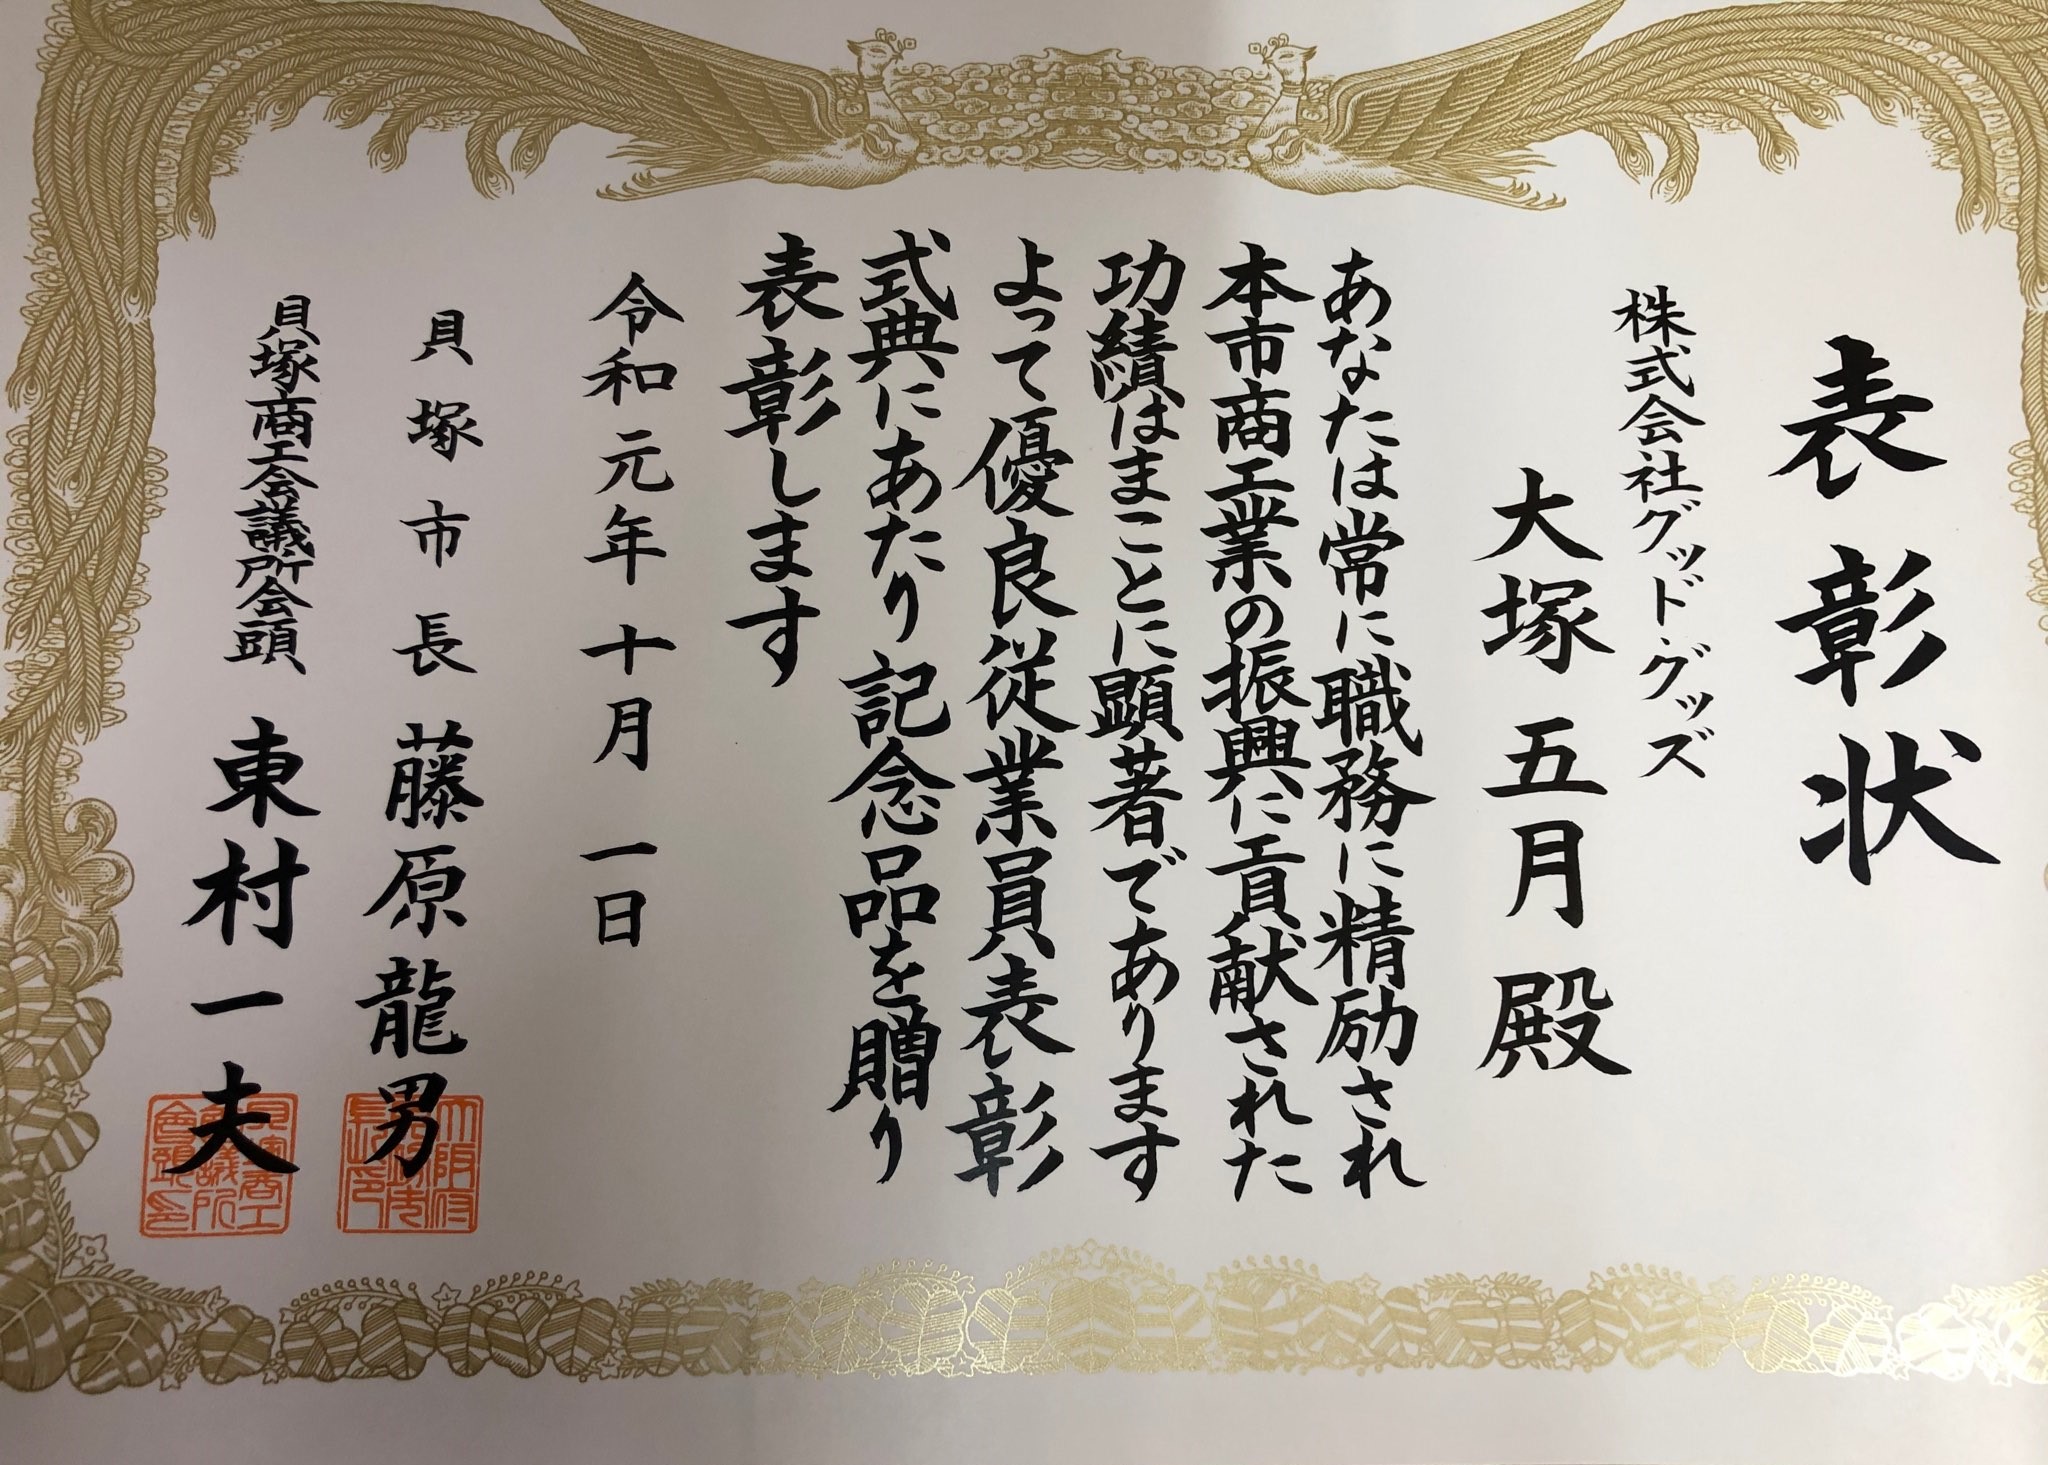 表彰状
株式会社グッド・グッズ
大塚五月殿
あなたは常に職務に精励され
本市商工業の振興に貢献された
功績はまことに顕著であります
よって優良従業員表彰
式典にあたり記念品を贈り
表彰します
令和元年十月一日
貝塚市長 藤原龍男
貝塚商工会議所会頭 東村一夫